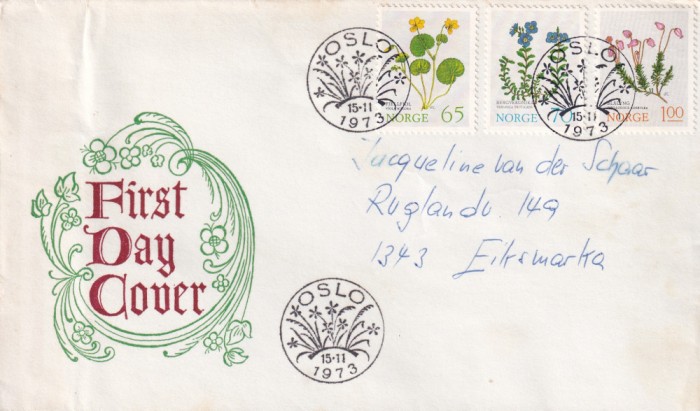 OSLO
15-11
1973
FJELLFIOL
NORGE 65
NORGE 70
OSLO
15-11
1973
NORGE 1.00
Jacqueline van der Schaar
Ruglandv. 149
1343 Eiksmarka
First
Day
Cover
OSLO
15-11
1973